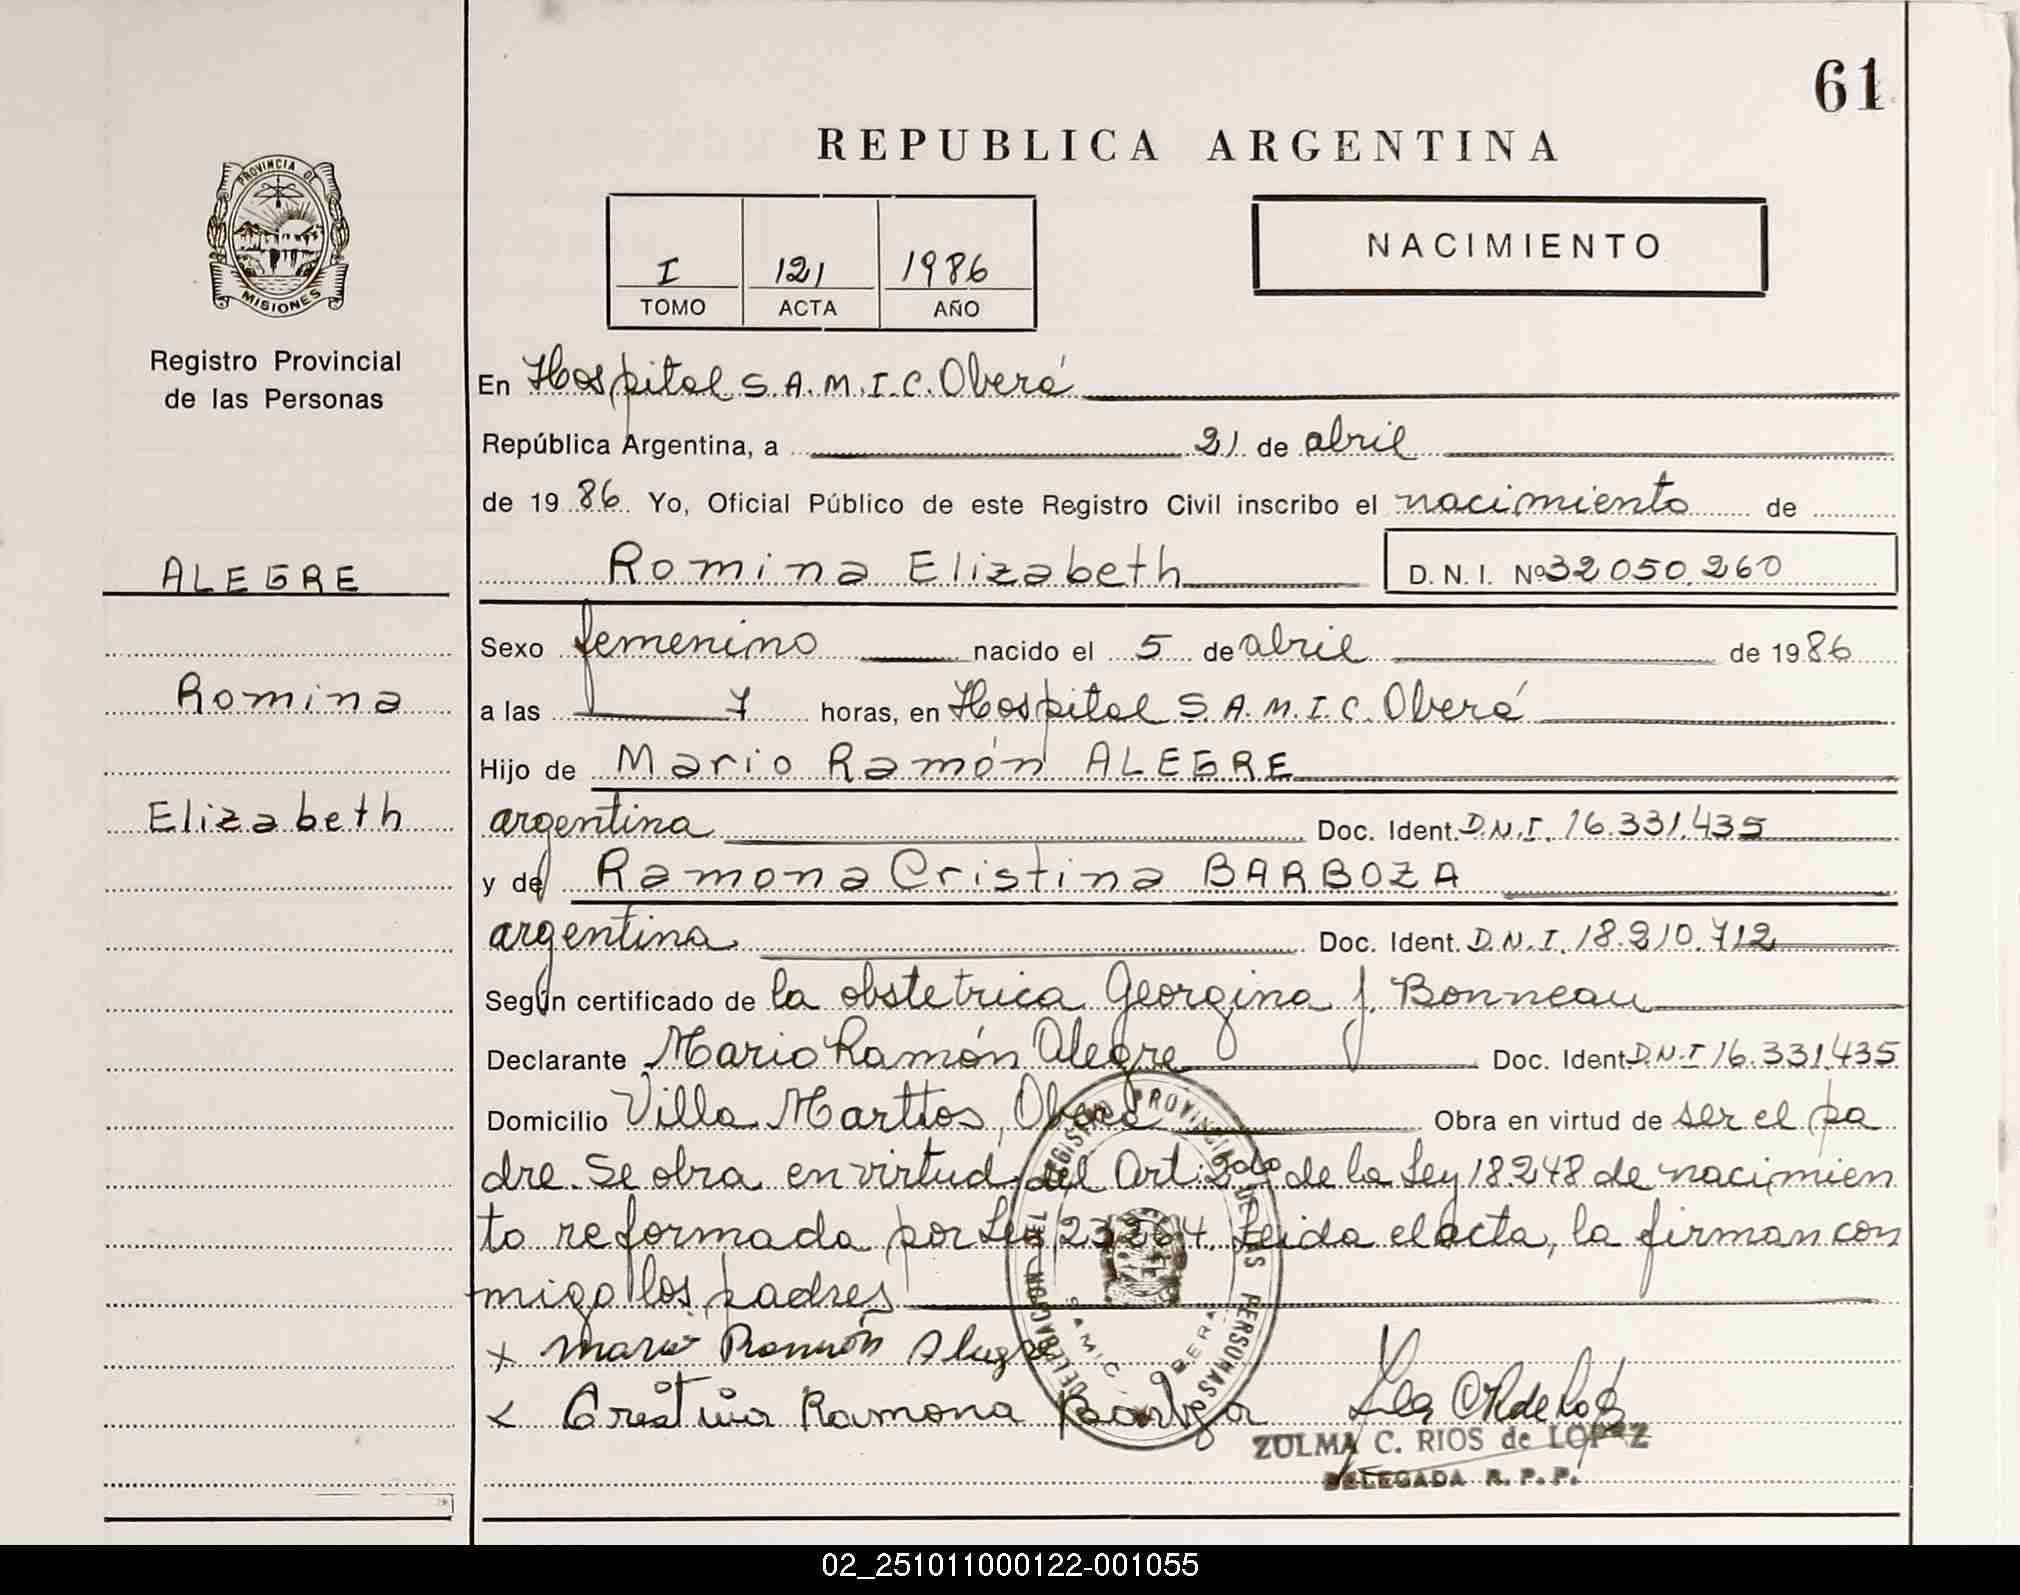 61
REPUBLICA ARGENTINA
PROVINCIA DE
MISIONES
Registro Provincial
de las Personas
I 121 1986
TOMO ACTA AÑO
NACIMIENTO
En Hospital S.A.M.I.C. Oberá
República Argentina, a 21 de abril
de 19 86 Yo, Oficial Público de este Registro Civil inscribo el nacimiento de
ALEGRE
Romina Elizabeth D. N. I. Nº 32.050.260
Sexo femenino nacido el 5 de abril de 19 86
Romina
a las 7 horas, en Hospital S.A.M.I.C. Oberá
Hijo de Mario Ramón ALEGRE
Elizabeth
argentina Doc. Ident. D.N.I. 16.331.435
y de Ramona Cristina BARBOZA
argentina Doc. Ident. D.N.I. 18.210.712
Según certificado de la obstetrica Georgina J. Bonneau
Declarante Mario Ramón Alegre Doc. Ident. D.N.I 16.331.435
Domicilio Villa Marttos, Oberá Obra en virtud de ser el pa
dre. Se obra en virtud del Art. 2do de la Ley 18248 de nacimien
to reformada por Ley 23264. Leida el acta, la firman con
migo los padres
x Mario Ramón Alegre
x Cristina Ramona Barboza
ZULMA C. RIOS de LOPEZ
DELEGADA R. P. P.
DELEGACION DEL REGISTRO PROVINCIAL DE LAS PERSONAS
SAMIC OBERA
02_251011000122-001055